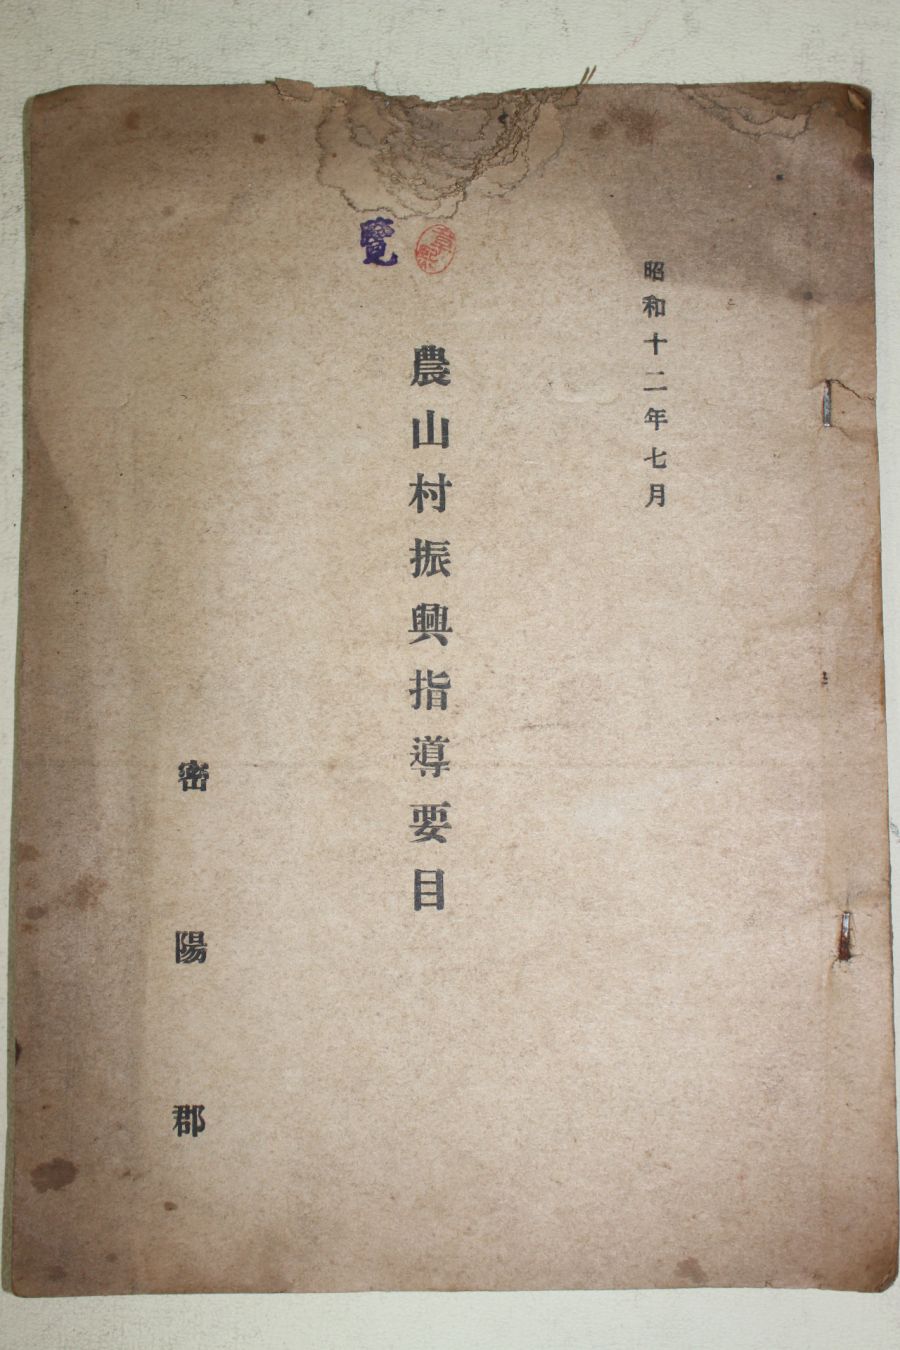 昭和十二年七月
農山村振興指導要目
覽
密陽郡